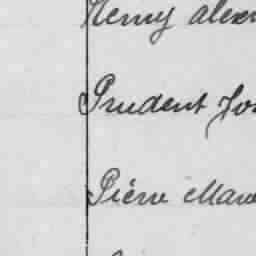 Henry Alex
Prudent Jos
Pierre Marc